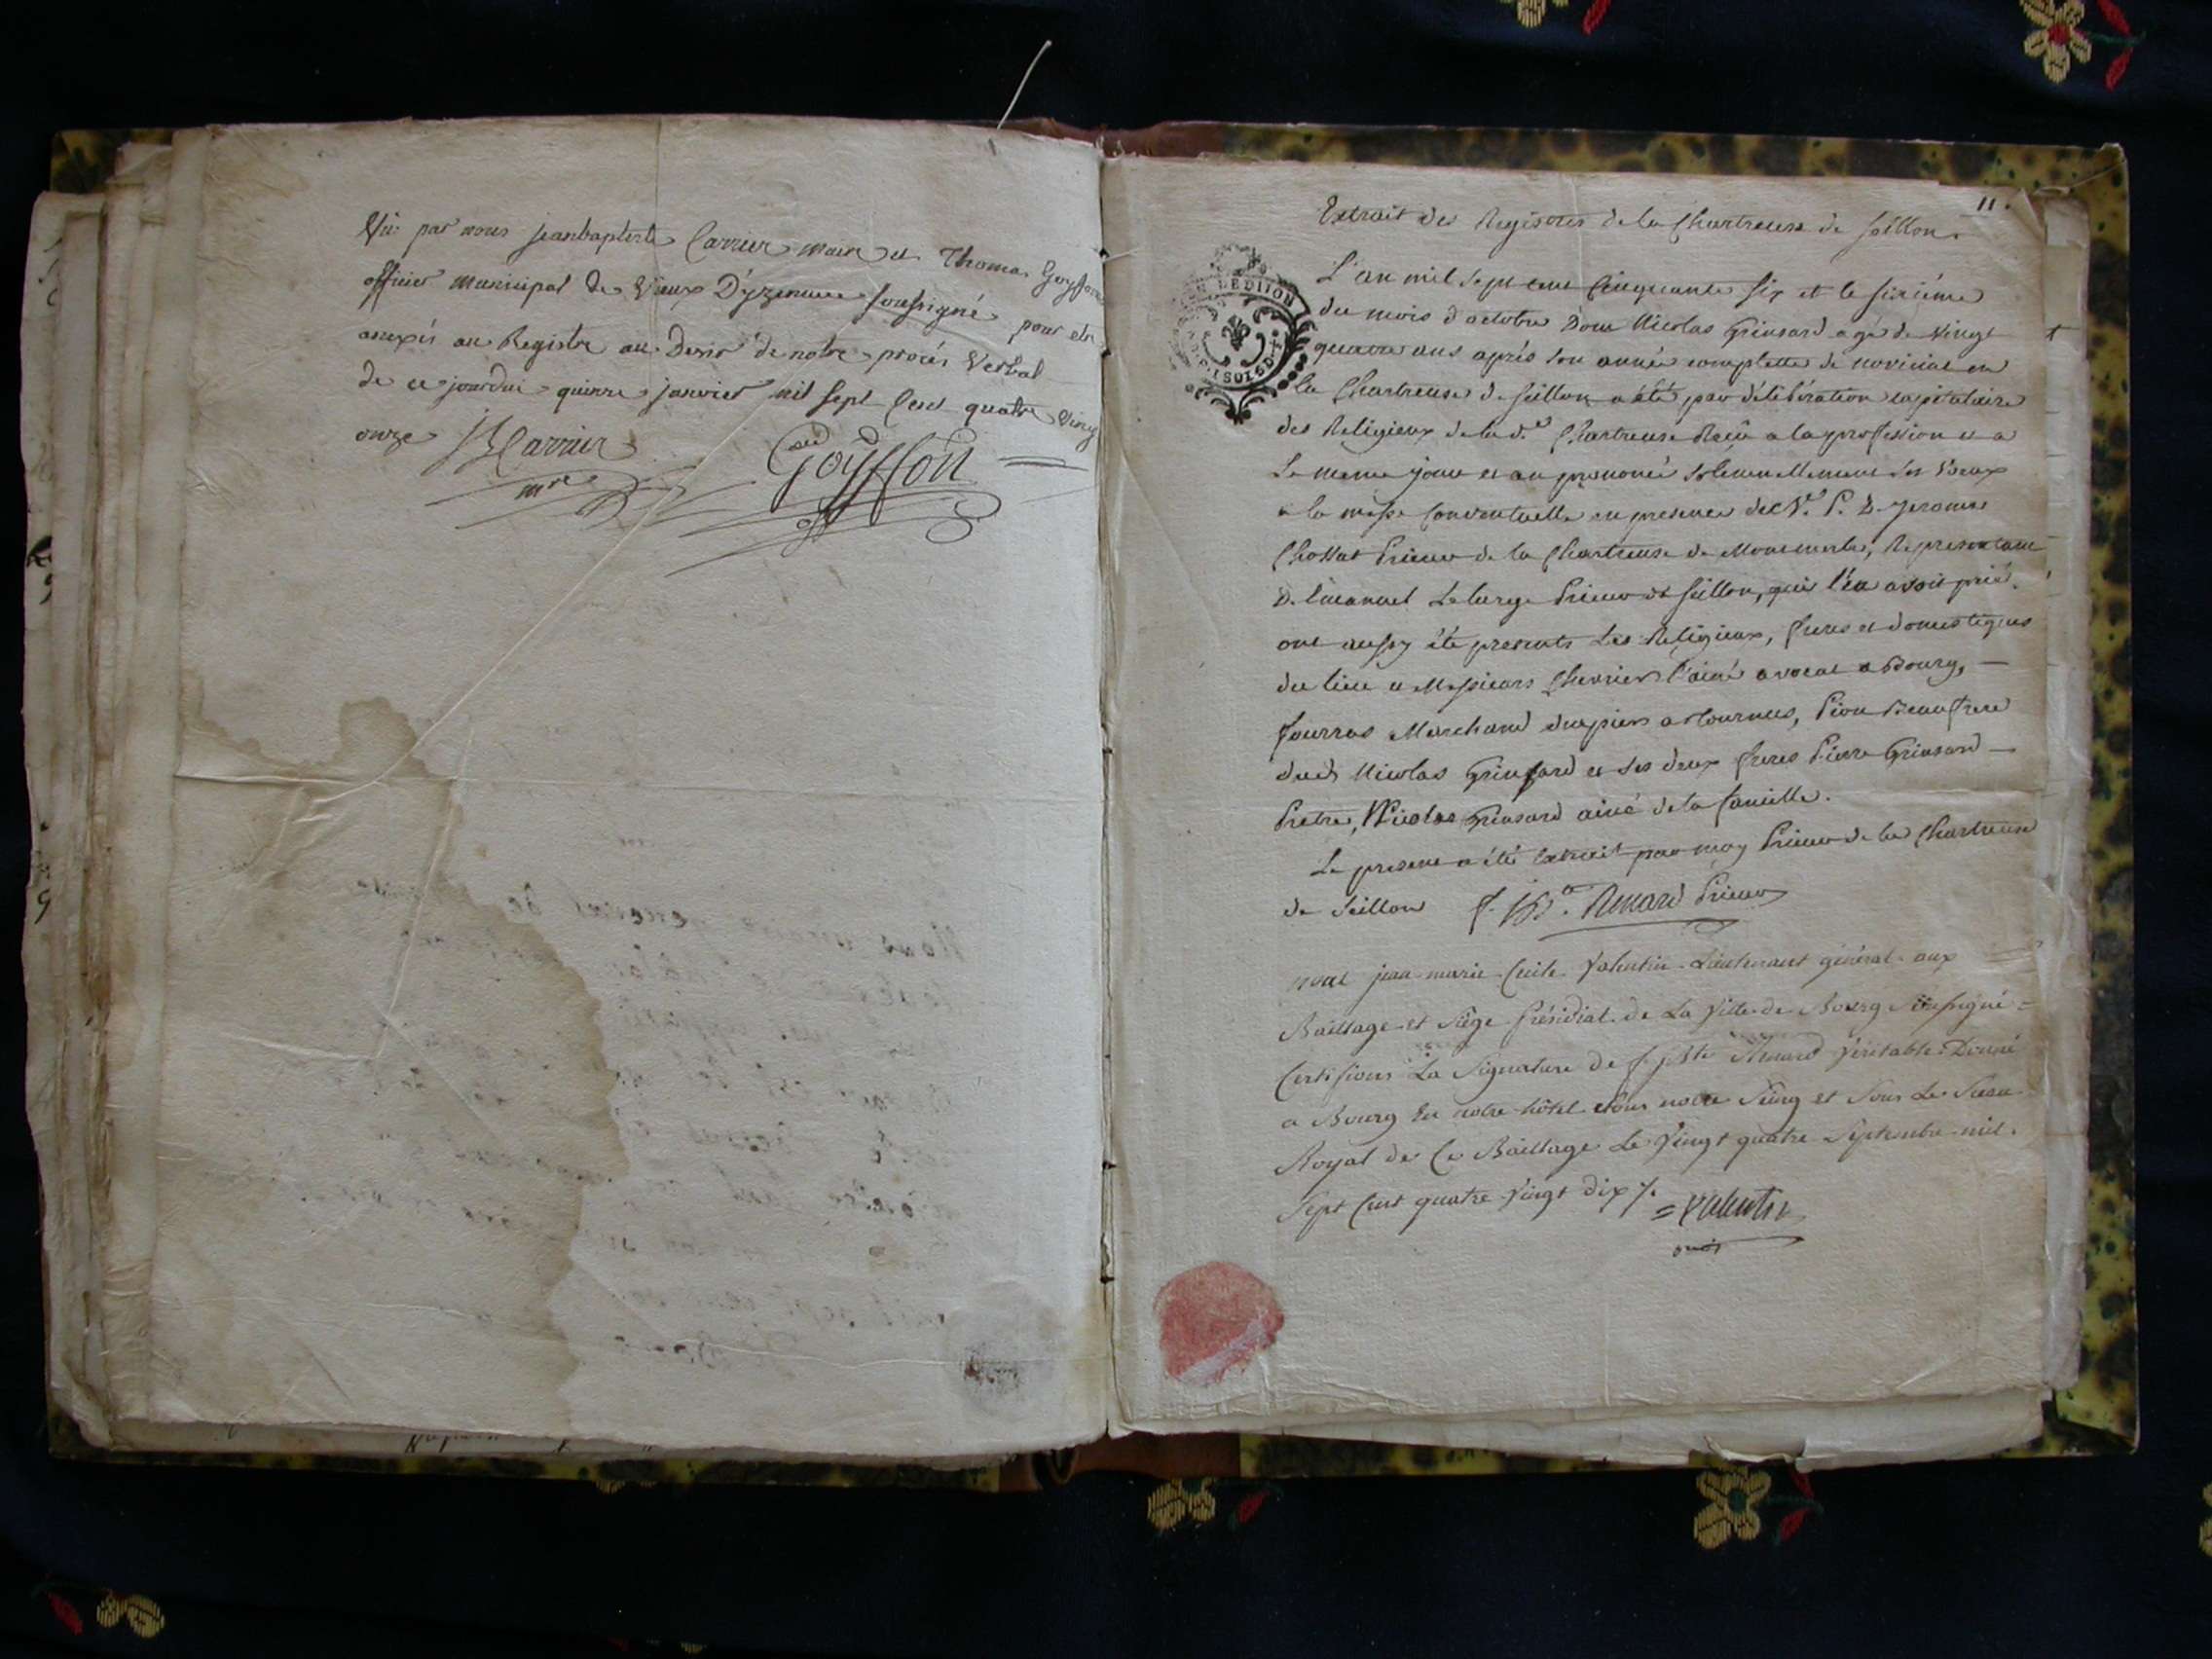 Vù par nous jeanbaptiste Carrier maire et Thomas Goyffon
officier municipal de Vieux D'yzenave soussigné pour etre
anexés au Registre au Desir de notre procés Verbal
de ce jourdui quinze janvier mil sept Cent quatre Vingt
onze JB Carrier Goyffon
mre off
11.
Extrait des Registres de la Chartreuse de Seillon.
L'an mil sept cent Cinquante six et le sixiéme
du mois d'octobre Dom Nicolas Grinsard agé de vingt
quatre ans aprés son année complette de noviciat en
la Chartreuse de Seillon a été par délibération capitulaire
des Religieux de lad.e Chartreuse Reçu a la profession et a
Le meme jour et an prononcé solemnellement ses Vœux
a la messe Conventuelle en presence du V. P. D. Jerome
Chossat Prieur de la Chartreuse de Montmerle, Representant
D. Emanuel Prieur de Seillon, qui l'en avoit prié.
ont aussy été presents Les Religieux, freres et domestiques
du lieu et Messieurs Chevrier l'ainé avocat a Bourg,
Fourras Marchand drapier a Tournus, Pion Beaufrere
dud. Nicolas Grinsard et ses deux freres Pierre Grinsard
Pretre, Nicolas Grinsard ainé de la famille.
Le present a été Extrait par moy Prieur de la Chartreuse
de Seillon f. jBte. Prieur
nous jean marie Cecile Valentin Lieutenant général aux
Baillage et siége Présidial de La Ville de Bourg soussigné =
Certifions La Signature de f. jBte Véritable. Donné
a Bourg En notre hôtel sous notre Seing et Sous Le Sceau
Royal de Ce Baillage Le Vingt quatre Septembre mil
Sept Cent quatre Vingt dix /.
= Valentin